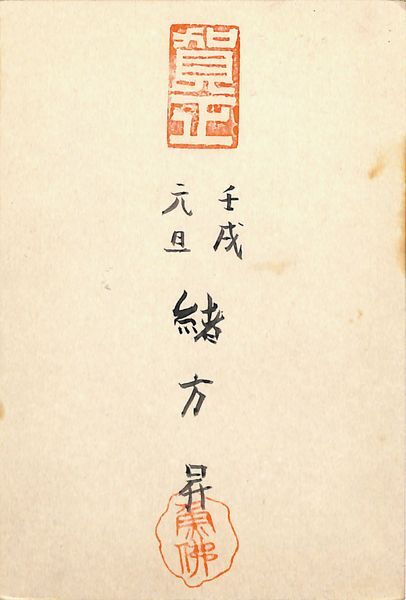 賀正
壬戌
元旦
緒方昇
魚佛